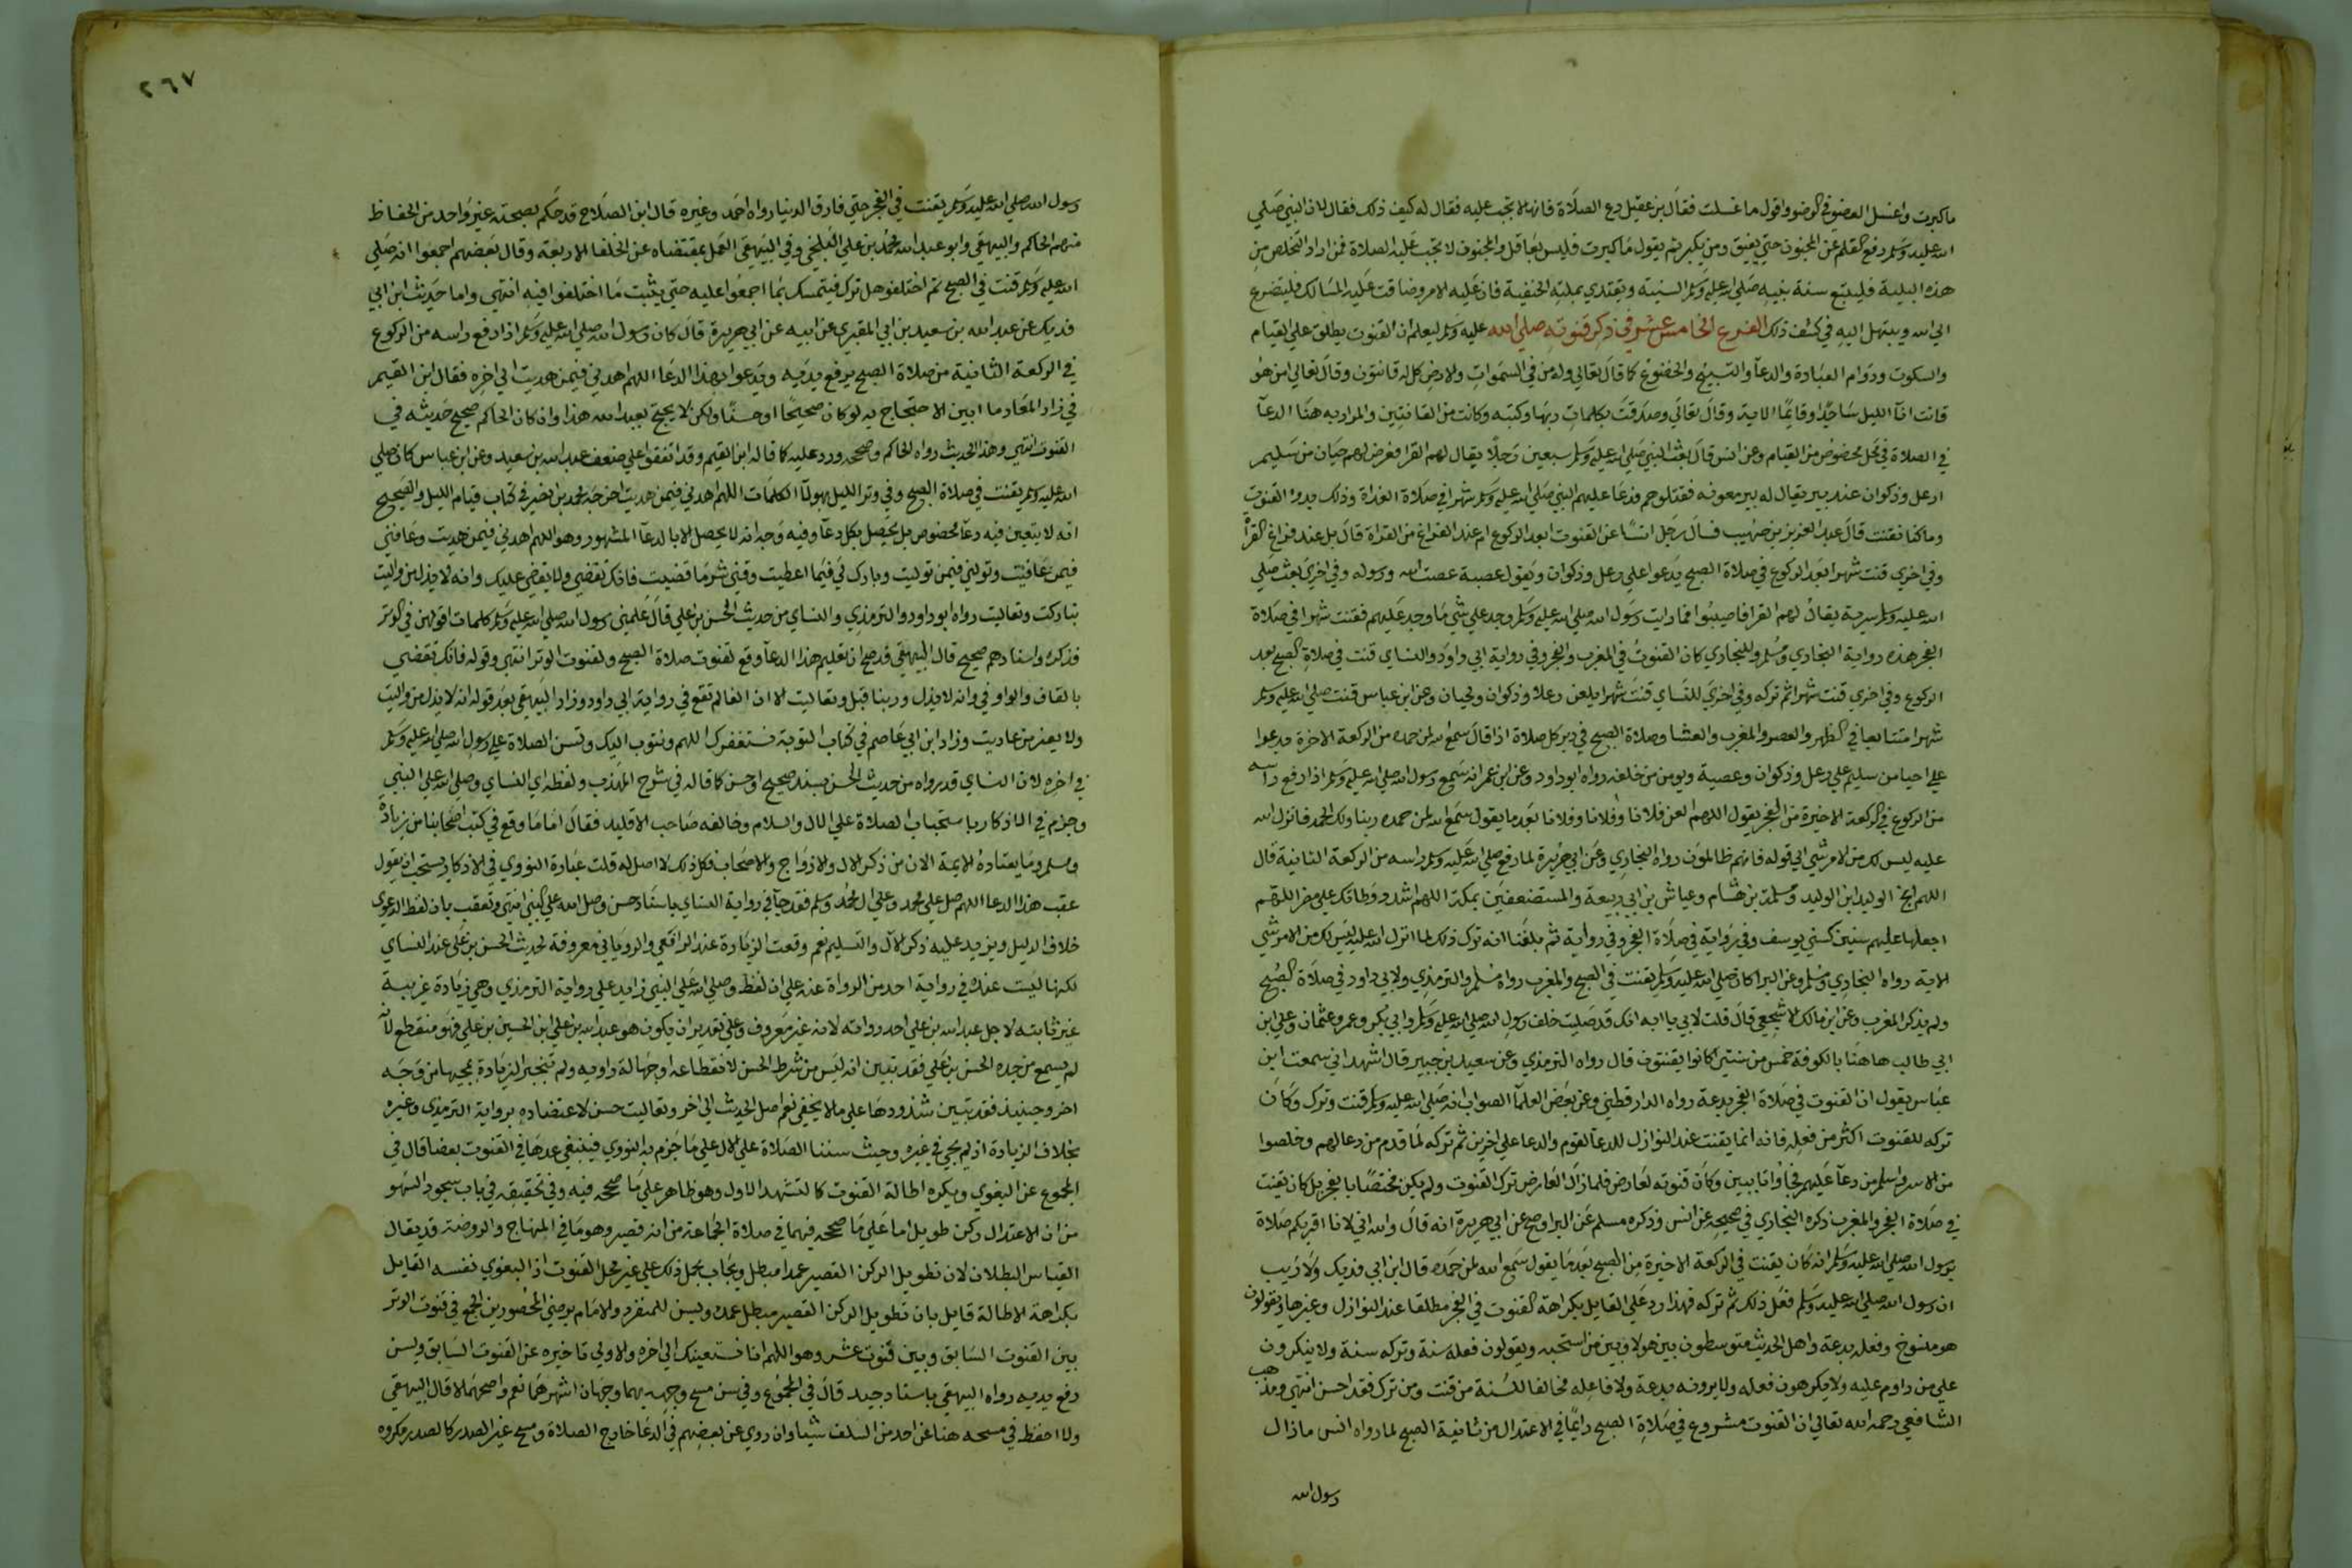 ما كبرت واغسل العضو في الوضوء واقول ما غسلت فقال بن عقيل دع الصلاة فانها لا تجب عليه فقال له كيف ذلك فقال لان النبي صلي
الله عليه وسلم رفع القلم عن المجنون حتي يفيق ومن يكبر ثم يقول ما كبرت فليس بعاقل والمجنون لا تجب عليه الصلاة فمن اراد التخلص من
هذه البلية فليتبع سنة نبيه صلي الله عليه وسلم السنية ويقتدي بملته الحنيفية فان عليه الامر وضاقت عليه المسالك فليتضرع
الي الله ويبتهل اليه في كشف ذلك الفرع الخامس عشر في ذكر قنوته صلي الله عليه وسلم ليعلم ان القنوت يطلق علي القيام
والسكوت ودوام العبادة والدعآ والتسبيح والخضوع كما قال تعالي وله من في السموات والارض كل له قانتون وقال تعالي امن هو
قانت انآ الليل ساجدا وقايما الاية وقال تعالي وصدقت بكلمات ربها وكتبه وكانت من القانتين والمراد به هنا الدعآ
في الصلاة في محل مخصوص من القيام وعن انس قال بعث النبي صلي الله عليه وسلم سبعين رجلا يقال لهم القرا فعرض لهم حيان من سليم
رعل وذكوان عند بير يقال له بير معونه فقتلوهم فدعا عليهم النبي صلي الله عليه وسلم شهرا في صلاة الغداة وذلك بدو القنوت
وما كنا نقنت قال عبد العزيز بن صهيب فسال رجل انسا عن القنوت ابعد الركوع ام عند الفراغ من القراة قال بل عند فراغ القراة
وفي اخري قنت شهرا بعد الركوع في صلاة الصبح يدعو علي رعل وذكوان ويقول عصية عصت الله ورسوله وفي اخري بعث صلي
الله عليه وسلم سرية يقال لهم القرا فاصيبوا فما رايت رسول الله صلي الله عليه وسلم وجد علي شي ما وجد عليهم فقنت شهرا في صلاة
الفجر هذه رواية البخاري ومسلم وللبخاري كان القنوت في المغرب والفجر وفي رواية ابي داود والنساي قنت في صلاة الصبح بعد
الركوع وفي اخري قنت شهرا ثم تركه وفي اخري للنساي قنت شهرا يلعن رعلا وذكوان ولحيان وعن ابن عباس قنت صلي الله عليه وسلم
شهرا متتابعا في الظهر والعصر والمغرب والعشا وصلاة الصبح في دبر كل صلاة اذا قال سمع الله لمن حمده من الركعة الاخرة يدعوا
علي احيا من سليم علي رعل وذكوان وعصية ويومن من خلفه رواه ابو داود وعن ابن عمر انه سمع رسول الله صلي الله عليه وسلم اذا رفع راسه
من الركوع في الركعة الاخيرة من الفجر يقول اللهم العن فلانا وفلانا وفلانا بعد ما يقول سمع الله لمن حمده ربنا ولك الحمد فانزل الله
عليه ليس لك من الامر شي الي قوله فانهم ظالمون رواه البخاري وعن ابي هريرة لما رفع صلي الله عليه وسلم راسه من الركعة الثانية قال
اللهم انج الوليد ابن الوليد وسلمة بن هشام وعياش بن ابي ربيعة والمستضعفين بمكة اللهم اشدد وطاتك علي مضر اللهم
اجعلها عليهم سنين كسني يوسف وفي رواية في صلاة الفجر وفي رواية ثم بلغنا انه ترك ذلك لما انزل الله عليه ليس لك من الامر شي
الاية رواه البخاري ومسلم وعن البرا كان صلي الله عليه وسلم يقنت في الصبح والمغرب رواه مسلم والترمذي ولابي داود في صلاة الصبح
ولم يذكر المغرب وعن ابن مالك الاشجعي قال قلت لابي يا ابه انك قد صليت خلف رسول الله صلي الله عليه وسلم وابي بكر وعمر وعثمان وعلي ابن
ابي طالب هاهنا بالكوفة خمس من سنين كانوا يقنتون قال رواه الترمذي وعن سعيد بن جبير قال اشهد اني سمعت ابن
عباس يقول ان القنوت في صلاة الفجر بدعة رواه الدارقطني وعن بعض العلمآ الصواب انه صلي الله عليه وسلم قنت وترك وكان
تركه للقنوت اكثر من فعله فانه انما يقنت عند النوازل للدعا لقوم والدعا علي اخرين ثم تركه لما قدم من دعا لهم وخلصوا
من الاسر واسلم من دعآ عليهم فجاوا تايبين وكان قنوته لعارض فلما زال العارض ترك القنوت ولم يكن مختصا بالفجر بل كان يقنت
في صلاة الفجر والمغرب ذكره البخاري في صحيحه عن انس وذكره مسلم عن البرا وصح عن ابي هريرة انه قال والله اني لانا اقربكم صلاة
برسول الله صلي الله عليه وسلم انه كان يقنت في الركعة الاخيرة من الصبح بعد ما يقول سمع الله لمن حمده قال ابن ابي فديك ولا ريب
ان رسول الله صلي الله عليه وسلم فعل ذلك ثم تركه فهذا رد علي القايل بكراهة القنوت في الفجر مطلقا عند النوازل وغيرها ويقولون
هو منسوخ وفعله بدعة واهل الحديث متوسطون بين هولا وبين من استحبه ويقولون فعله سنة وتركه سنة ولا ينكرون
علي من داوم عليه ولا يكرهون فعله ولا يرونه بدعة ولا فاعله مخالفا للسنة من قنت ومن ترك فقد احسن انتهي ومذهب
الشافعي رحمه الله تعالي ان القنوت مشروع في صلاة الصبح دايما في الاعتدال من ثانية الصبح لما رواه انس ما زال
رسول الله
٢٦٧
رسول الله صلي الله عليه وسلم يقنت في الفجر حتي فارق الدنيا رواه احمد وغيره قال ابن الصلاح قد حكم بصحته غير واحد من الحفاظ
منهم الحاكم والبيهقي وابو عبد الله محمد بن علي البلخي وفي البيهقي العمل بمقتضاه عن الخلفا الاربعة وقال بعضهم اجمعوا انه صلي
الله عليه وسلم قنت في الصبح ثم اختلفوا هل ترك فيتمسك بما اجمعوا عليه حتي يثبت ما اختلفوا فيه انتهي واما حديث ابن ابي
فديك عن عبد الله بن سعيد بن ابي المقبري عن ابيه عن ابي هريرة قال كان رسول الله صلي الله عليه وسلم اذا رفع راسه من الركوع
في الركعة الثانية من صلاة الصبح يرفع يديه ويدعوا بهذا الدعا اللهم اهدني فيمن هديت الي اخره فقال ابن القيم
في زاد المعاد ما ابين الاحتجاج به لو كان صحيحا او حسنا ولكن لا يحتج بعبد الله هذا وان كان الحاكم صحح حديثه في
القنوت انتهي وهذا الحديث رواه الحاكم وصححه ورد عليه كما قاله ابن القيم وقد اتفقوا علي ضعف عبد الله بن سعيد وعن ابن عباس كان صلي
الله عليه وسلم يقنت في صلاة الصبح وفي وتر الليل بهولآ الكلمات اللهم اهدني فيمن هديت اخرجه محمد بن نصر في كتاب قيام الليل والصحيح
انه لا يتعين فيه دعا مخصوص بل يحصل بكل دعآ وفيه وجه انه لا يحصل الا بالدعآ المشهور وهو اللهم اهدني فيمن هديت وعافني
فيمن عافيت وتولني فيمن توليت وبارك لي فيما اعطيت وقني شر ما قضيت فانك تقضي ولا يقضي عليك وانه لا يذل من واليت
تباركت وتعاليت رواه ابو داود والترمذي والنساي من حديث الحسن بن علي قال علمني رسول الله صلي الله عليه وسلم كلمات اقولهن في الوتر
فذكره واسنادهم صحيح قال البيهقي قد صح ان تعليم هذا الدعآ وقع لقنوت صلاة الصبح ولقنوت الوتر انتهي وقوله فانك تقضي
بالفاء والواو في وانه لا يذل وربنا قبل وتعاليت الا ان الفا لم تقع في رواية ابي داود وزاد البيهقي بعد قوله انه لا يذل من واليت
ولا يعز من عاديت وزاد ابن ابي عاصم في كتاب التوبة نستغفرك اللهم ونتوب اليك وتسن الصلاة علي رسول الله صلي الله عليه وسلم
في اخره لان النساي قد رواه من حديث الحسن بسند صحيح او حسن كما قاله في شرح المهذب ولفظه اي النساي وصلي الله علي النبي
وجزم في الاذكار باستحباب الصلاة علي الال والسلام وخالفه صاحب الاقليد فقال اما ما وقع في كتب اصحابنا من زيادة
وسلم وما يعتاده الايمة الان من ذكر الال والازواج والاصحاب فكل ذلك لا اصل له قلت عبارة النووي في الاذكار يستحب ان يقول
عقب هذا الدعا اللهم صل علي محمد وعلي ال محمد وسلم فقد جآ في رواية النساي باسناد حسن وصلي الله علي النبي انتهي وتعقب بان لفظ الدعوي
خلاف الدليل ويزيد عليه ذكر الآل والتسليم نعم وقعت الزيادة عند الرافعي والروياني معروفة لحديث الحسن بن علي عند النساي
لكنها ليست عنده في رواية احد من الرواة عنه علي ان لفظ وصلي الله علي النبي زايد علي رواية الترمذي وهي زيادة غريبة
غير ثابته لاجل عبد الله بن علي احد رواته لانه غير معروف وعلي تقدير ان يكون هو عبد الله بن علي ابن الحسين بن علي فهو منقطع لانه
لم يسمع من جده الحسن بن علي فقد تبين انه ليس من شرط الحسن لانقطاعه او جهالة راويه ولم تنجبر الزيادة بمجيها من وجه
اخر وحينيذ فقد تبين شذوذها علي ما لا يخفي نعم اصل الحديث الي اخر وتعاليت حسن لاعتضاده برواية الترمذي وغيره
بخلاف الزيادة اذ لم تجي في غيره وحيث سننا الصلاة علي الال علي ما جزم به النووي فينبغي عدها في القنوت بعضا قال في
المجموع عن البغوي ويكره اطالة القنوت كالتشهد الاول وهو ظاهر علي ما صححه فيه وفي تحقيقه في باب سجود السهو
من ان الاعتدال ركن طويل اما علي ما صححه فيهما في صلاة الجماعة من انه قصير وهو ما في المنهاج والروضة قد يقال
القياس البطلان لان تطويل الركن القصير عمدا مبطل ويجاب بحمل ذلك علي غير محل القنوت اذ البغوي نفسه القايل
بكراهة الاطالة قايل بان تطويل الركن القصير مبطل عمده ويسن للمنفرد والامام برضي المحصورين الجمع في قنوت الوتر
بين القنوت السابق وبين قنوت عمر وهو اللهم انا نستعينك الي اخره والاولي تاخيره عن القنوت السابق ويسن
رفع يديه رواه البيهقي باسناد جيد قال في المجموع وفي سن مسح وجهه بهما وجهان اشهرهما نعم واصحهما لا قال البيهقي
ولا احفظ في مسحه هنا عن احد من السلف شيا وان روي عن بعضهم في الدعا خارج الصلاة ومسح غير الصدر كالصدر مكروه